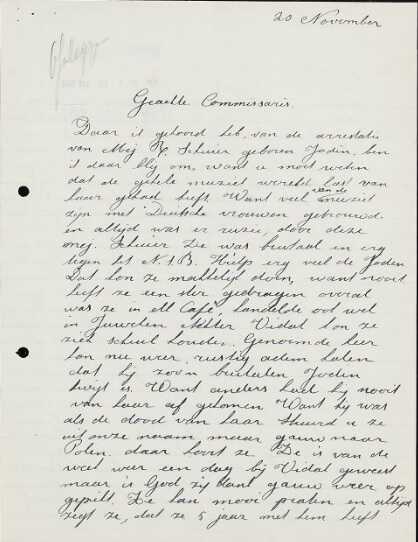 20 November
Geachte Commissaris.
Daar ik gehoord heb, van de arrestatie
van Mej Scheier geboren Jodin. ben
ik daar blij om, want u moet weten
dat de gehele muziek wereld last van
haar gehad heeft. Want veel van de muziek
zijn met Duitsche vrouwen getrouwd
en altijd was er ruzie, door deze
mej. Scheier Ze was brutaal en erg
tegen het N.S.B. Hielp erg veel de Joden
Dat kon ze makkelijk doen, want nooit
heeft ze een ster gedragen overal
was ze in elk Café, handelde ook wel
in Juwelen Vidal kon ze
zich schuil houden. Genoemde heer
kan nu weer, rustig adem halen
dat hij zoon brutalen Jodin
kwijt is. Want anders had hij nooit
van haar af gekomen Want hij was
als de dood van haar Stuurd u ze
uit onze naam maar gauw naar
Polen, daar hoort ze. Ze is van de
week weer een dag bij Vidal geweest
maar is God zij dank gauw weer op
gepikt. Ze kan mooi praten en altijd
zegt ze, dat ze 5 jaar met hem heeft